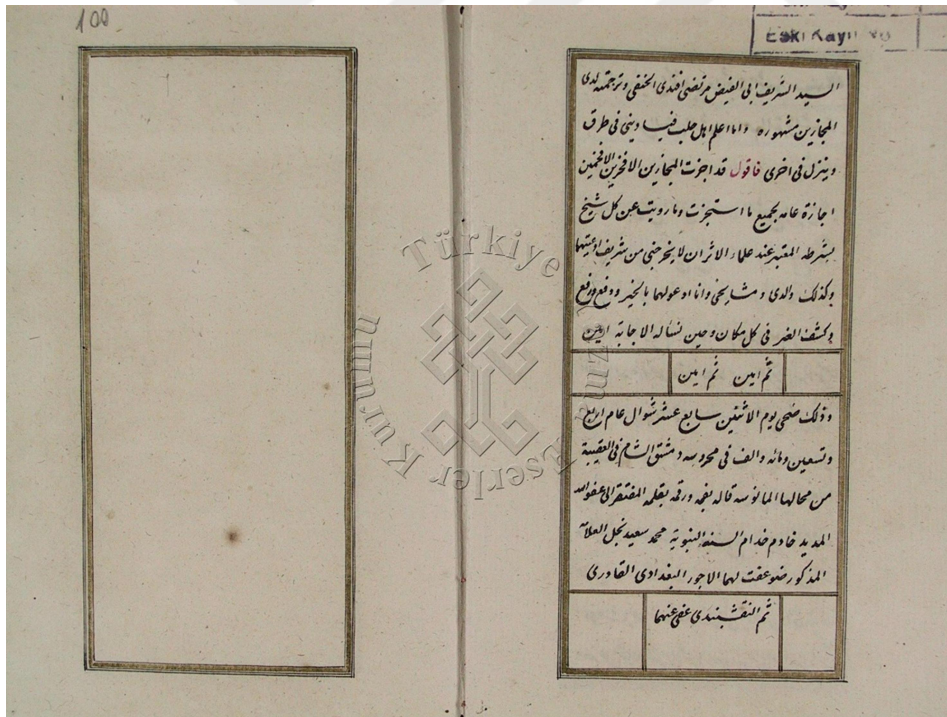 100
Eski Kayıt No
السيد الشريف ابى الفيض مرتضى افندى الحنفى وترجمته لدى
المجازين مشهوره واما اعلم اهل حلب فيا دينى فى طرق
وينزل فى اخرى فاقول قد اجزت المجازين الافخرين الافخمين
اجازة عامه بجميع ما استجزت وما رويت عن كل شيخ
بشرطه المعتبر عند علماء الاثر ان لا يخرجنى من شريف ادعيتها
وكذلك والدى ومشايخى وانا ادعو لهما بالخير ودفع
وكشف الضر فى كل مكان وحين نسأله الاجابة امين
ثم امين ثم امين
وذلك ضحى يوم الاثنين سابع عشر شوال عام اربع
وتسعين ومائه والف فى محروسه دمشق الشام فى العقيبة
من محالها المانوسه قاله بفمه ورقمه بقلمه المفتقر الى عفو الله
المديد خادم خدام السنه النبوية محمد سعيد نجل العلامة
المذكور ضوعفت لهما الاجور البغدادى القادرى
ثم النقشبندى عفى عنهما
Türkiye Yazma Eserler Kurumu